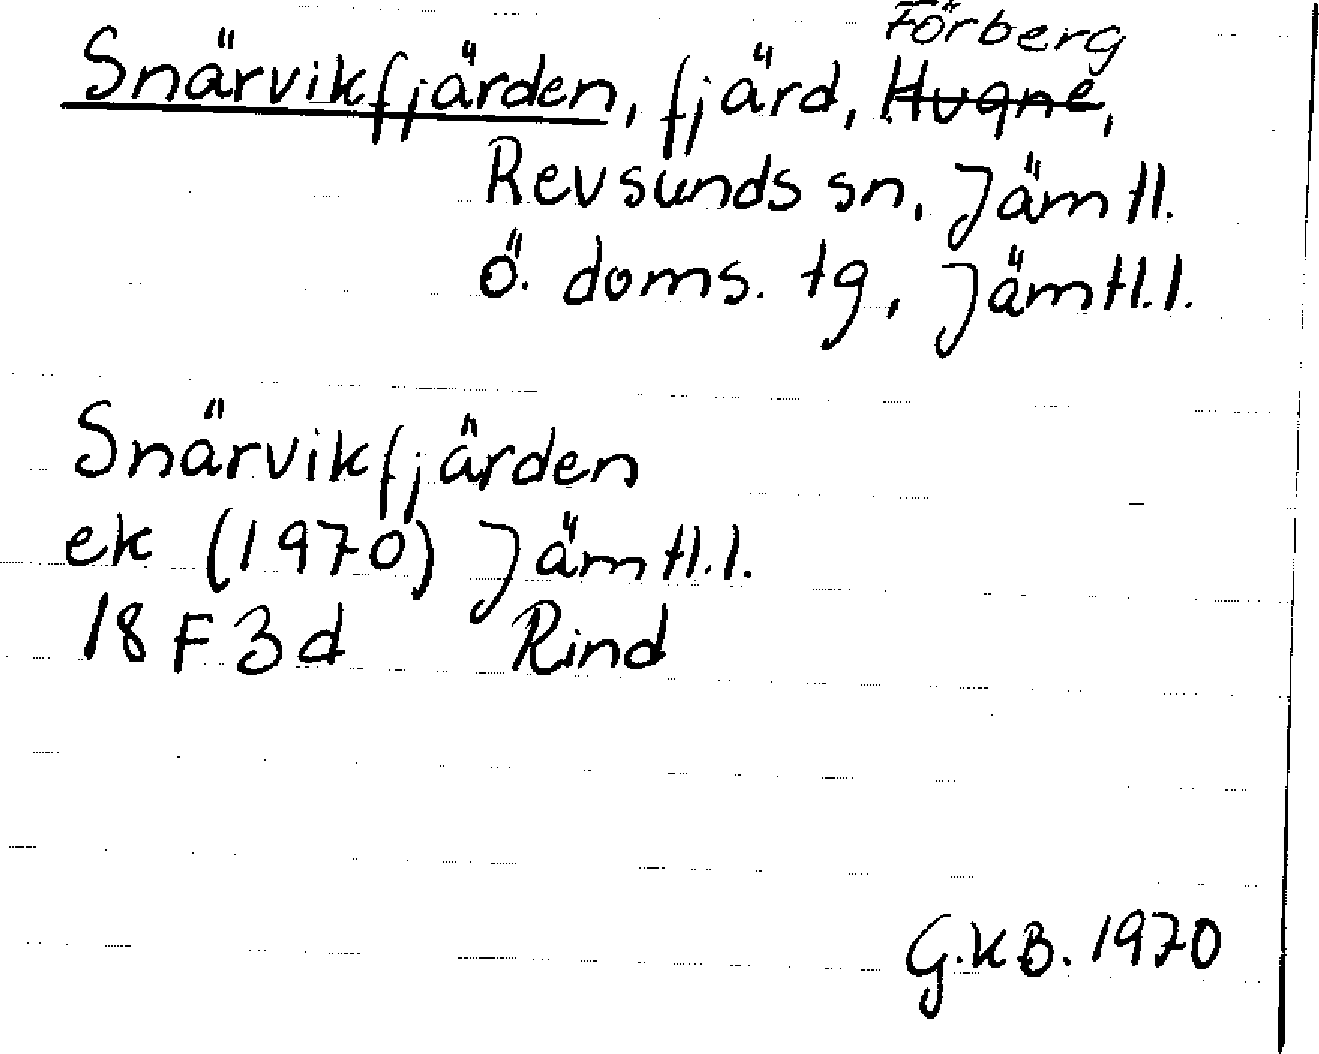 Förberg
Snärvikfjärden, fjärd, Hugne,
Revsunds sn, Jämtl.
Ö. doms. tg, Jämtl.l.
Snärvikfjärden
ek (1970) Jämtl.l.
18 F 3d Rind
G.K.B. 1970